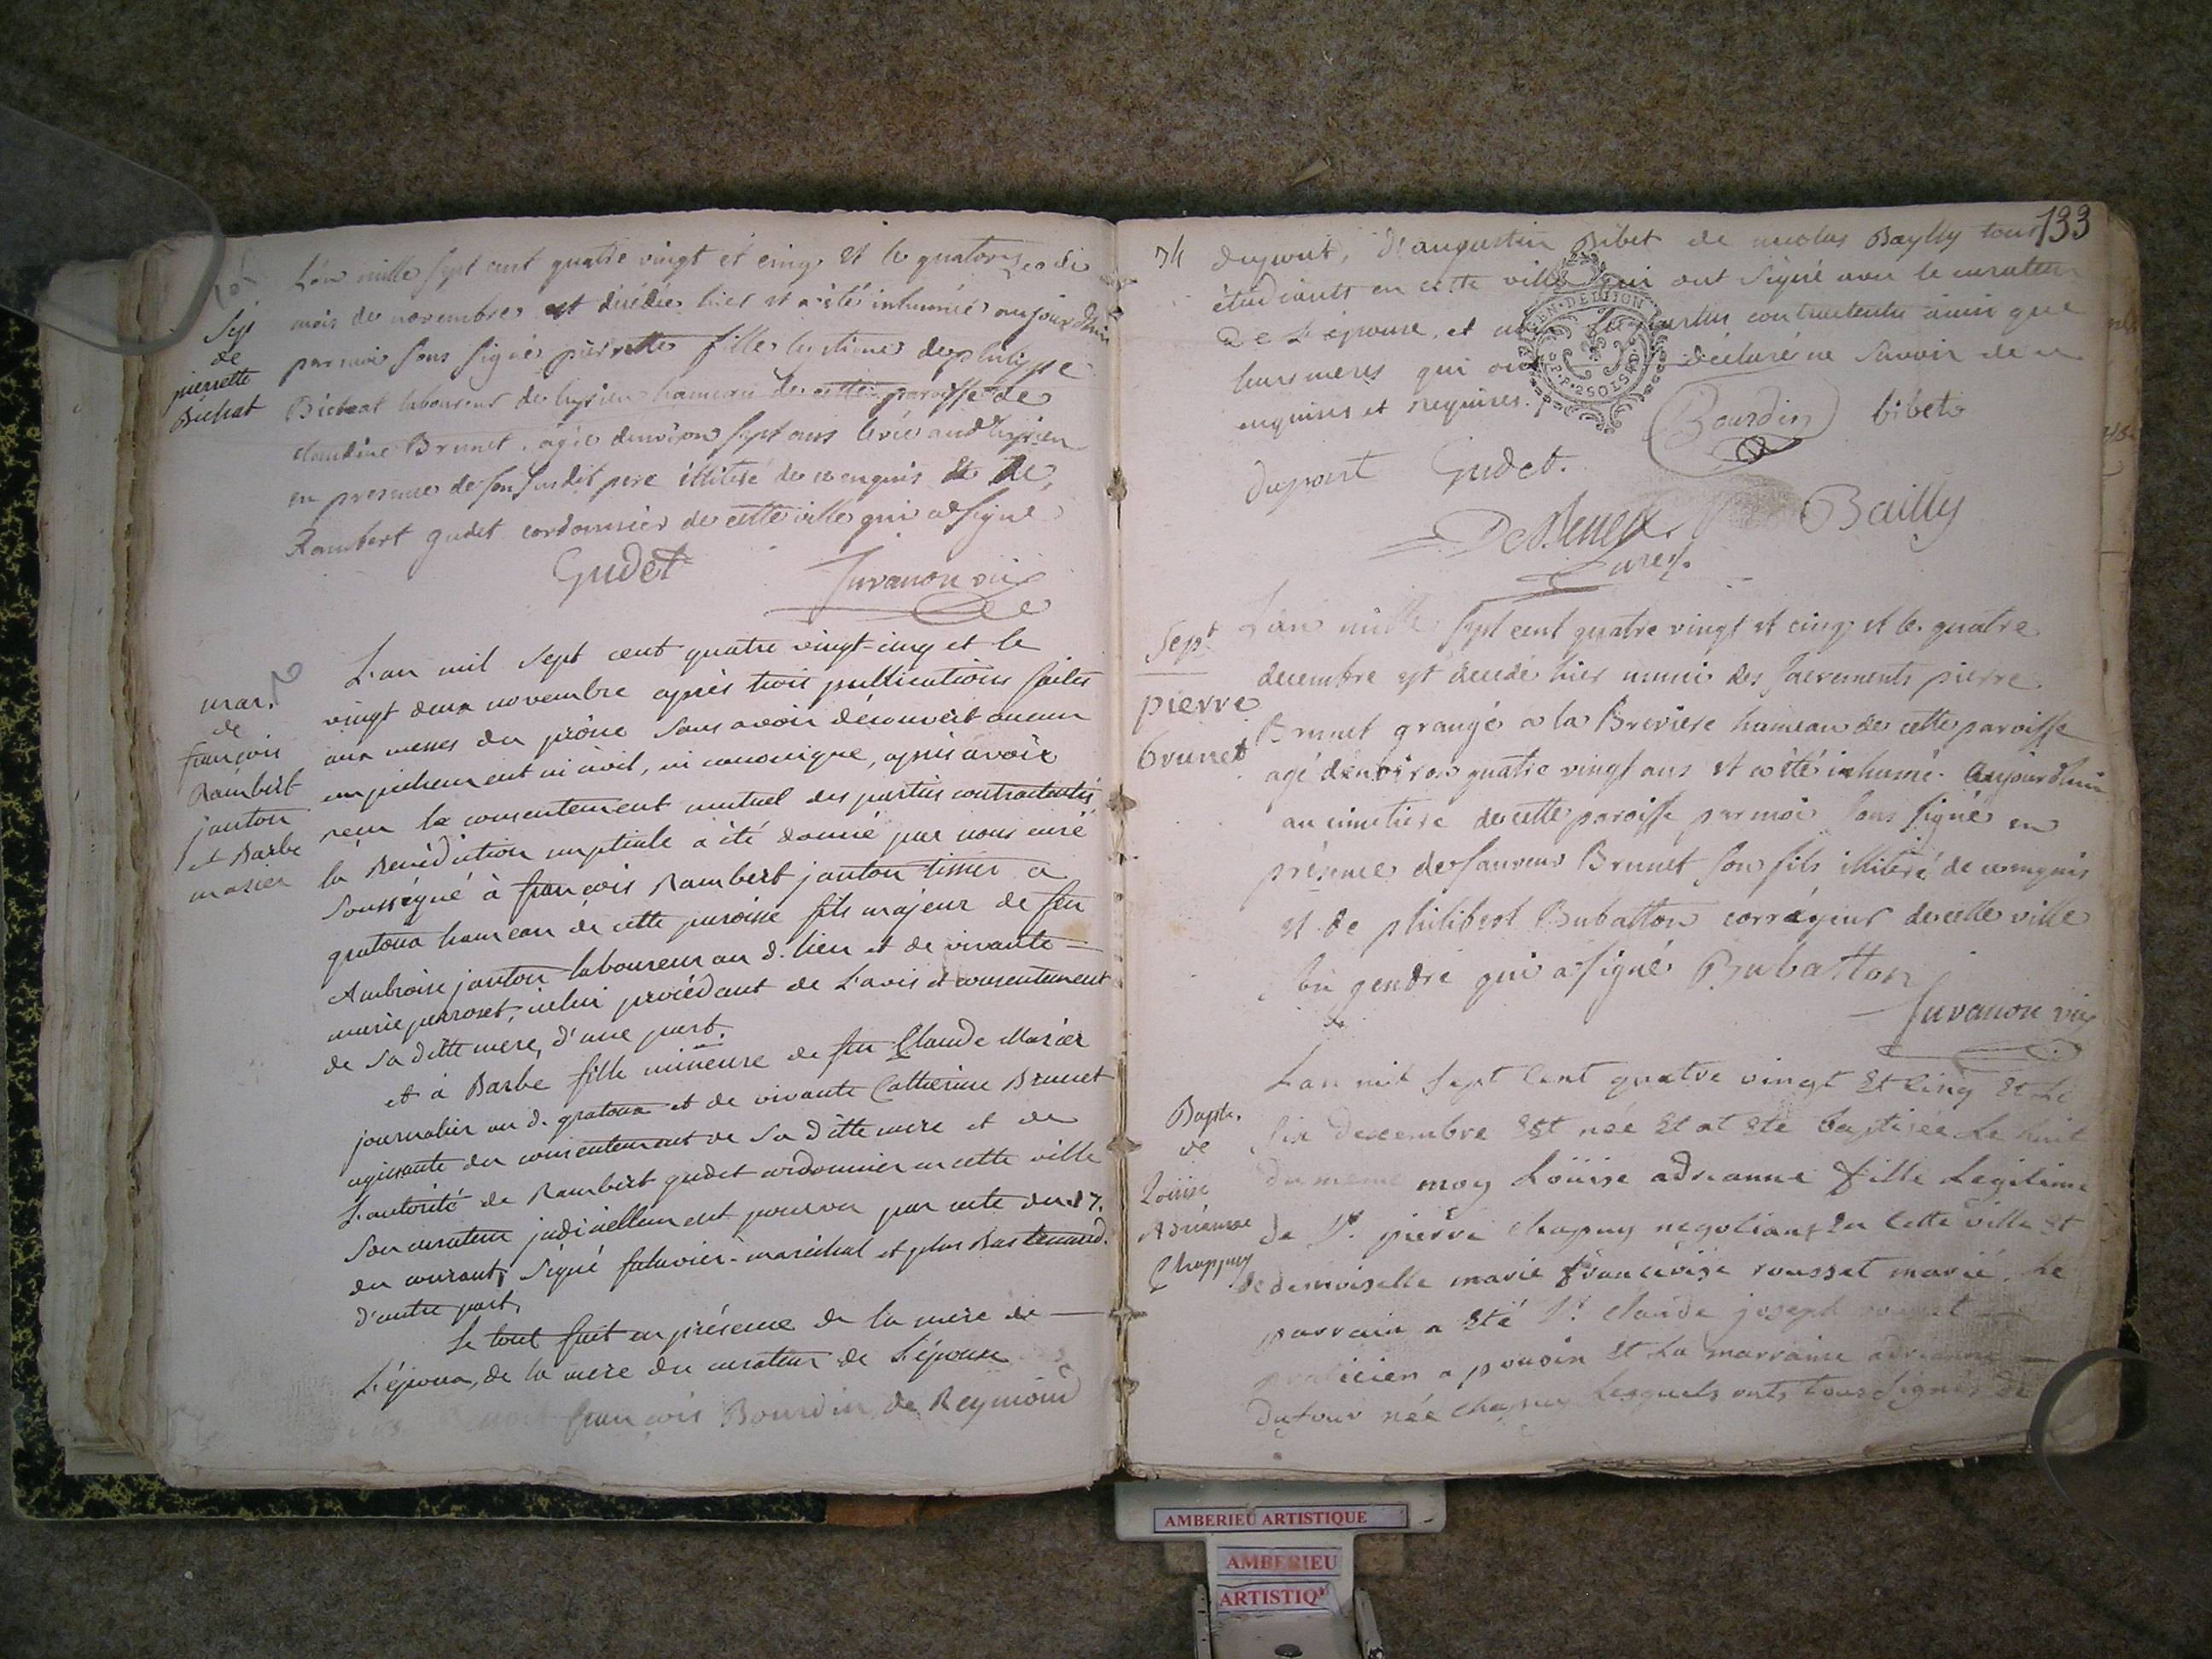 Sep
de
pierrette
Bichat
L'an mille sept cent quatre vingt et cinq et le quatorze du
mois de novembre est décédée hier et a été inhumée aujourdhui
par moi sous signé pierrette fille legitime de philippe
Bichat laboureur de hameau de cette paroisse de
claudine Brunet, agée denviron sept ans
en presence de son susdit pere illiteré de ce enquis et de
Rambert gudet cordonnier de cette ville qui a signé
Gudet Juvanon vic
mar.
de
françois
Rambert
janton
et Barbe
mazier
L'an mil sept cent quatre vingt-cinq et le
vingt deux novembre après trois publications faites
aux messes du prône sans avoir découvert aucun
empechement ni civil, ni canonique, après avoir
reçu le consentement mutuel des parties contractantes,
la Benédiction nuptiale a été donnée par nous curé
soussigné à françois Rambert janton tissier a
gratoux hameau de cette paroisse fils majeur de feu
Ambroise janton laboureur au d. lieu et de vivante
marie perroset, celui procédant de l'avis et consentement
de sa ditte mere, d'une part.
et à Barbe fille mineure de feu Claude Mazier
journalier au d. gratoux et de vivante Catherine Brunet
agissante du consentement de sa ditte mere et de
L'autorité de Rambert gudet cordonnier en cette ville
son curateur judiciellement pourvu par acte du 17.
du courant, signé falavier-maréchal et plus Bas
d'autre part.
Le tout fait en présence de la mere de
L'époux, de la mere du curateur de L'épouse
françois Bourdin, de Reymond
74
133
dupont, d'augustin Bibet de nicolas Baylly tous
étudiants en cette ville qui ont signé avec le curateur
de L'épouse, et non contractantes ainsi que
leurs meres qui ont déclaré ne savoir de ce
enquises et requises.
GEN. DE DIJON
Bourdin bibet
dupont Gudet.
Bailly
curé.
Sept
pierre
brunet
L'an mille sept cent quatre vingt et cinq et le quatre
decembre est decedé hier muni des sacrements pierre
Brunet grangé a la Breviere hameau de cette paroisse
agé denviron quatre vingt ans et a été inhumé aujourdhui
au cimetiere de cette paroisse par moi sous signé en
présence de sauveur Brunet son fils illiteré de ce enquis
et de philibert Bubatton corrayeur de cette ville
son gendre qui a signé Bubatton
Juvanon vic
Bapte.
de
Loüise
Adrianne
Chappuy
L'an mil sept cent quatre vingt et cinq et le
six decembre est née et at été baptisée le huit
du meme moy Loüise adrianne fille Legitime
de Sr. pierre chapuy negotiant en cette ville et
de demoiselle marie françoise rousset marié. le
parrain a été Sr. claude joseph rousset
praticien a poncin et la marraine adrianne
dufour née chapuy lesquels onts tous signés de
AMBERIEU ARTISTIQUE
AMBERIEU
ARTISTIQ